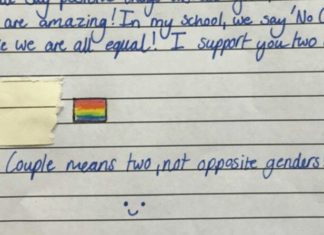 are amazing! In my school, we say 'No
we are all equal! I support you two
Couple means two, not opposite genders